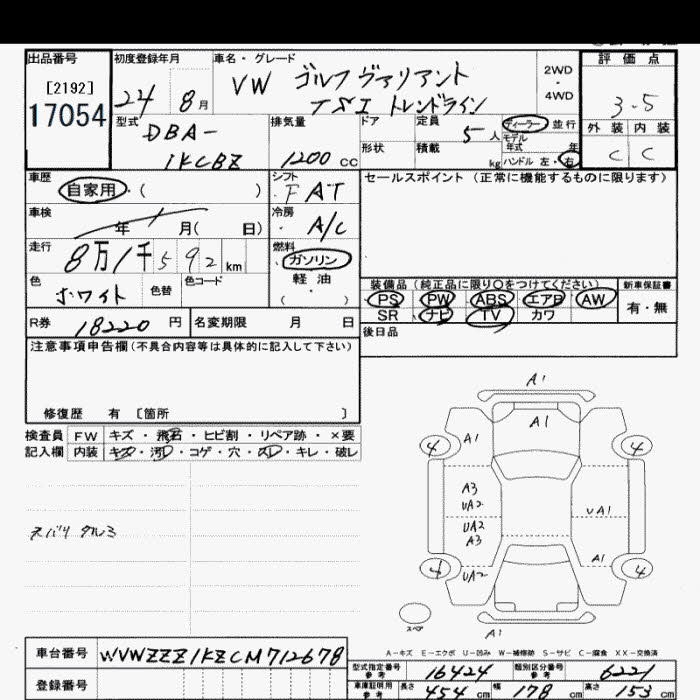 出品番号 初度登録年月 車名・グレード 評価点
[2192]
17054
24 8月
VW ゴルフ ヴァリアント
TSI トレンドライン
2WD
・
4WD
3.5
外装 内装
C C
型式 排気量 ドア 定員 5人 ディーラー 並行
DBA-
1KCBZ
1200 cc
形状 積載 kg
モデル年式 年
ハンドル 左・右
車歴 シフト セールスポイント (正常に機能するものに限ります)
自家用・( )
・FAT
車検 冷房
年 月( 日)
・A/C
走行 燃料
8万1千592km
・ガソリン
軽油
・( )
色 色替 色コード
ホワイト
装備品 (純正品に限り○をつけてください) 新車保証書
PS PW ABS エアB AW
SR ナビ TV カワ
有・無
R券 18220円 名変期限 月 日
後日品
注意事項申告欄(不具合内容等は具体的に記入して下さい)
修復歴 有 [箇所 ]
検査員 FW キズ・飛石・ヒビ割・リペア跡・×要
記入欄 内装 キズ・汚レ・コゲ・穴・スレ・キレ・破レ
スバリ タルミ
A1
A1
4 A1 4
A3
UA2
UA2
A3
UA1
4 UA2 A1 4
スペア
A1
A-キズ E-エクボ U-凹み W-補修跡 S-サビ C-腐食 XX-交換済
車台番号 WVWZZZ1KZCM712678
登録番号
型式指定番号 参考 16424 類別区分番号 参考 6221
車庫証明用 参考 長さ 454cm 幅 178cm 高さ 153cm